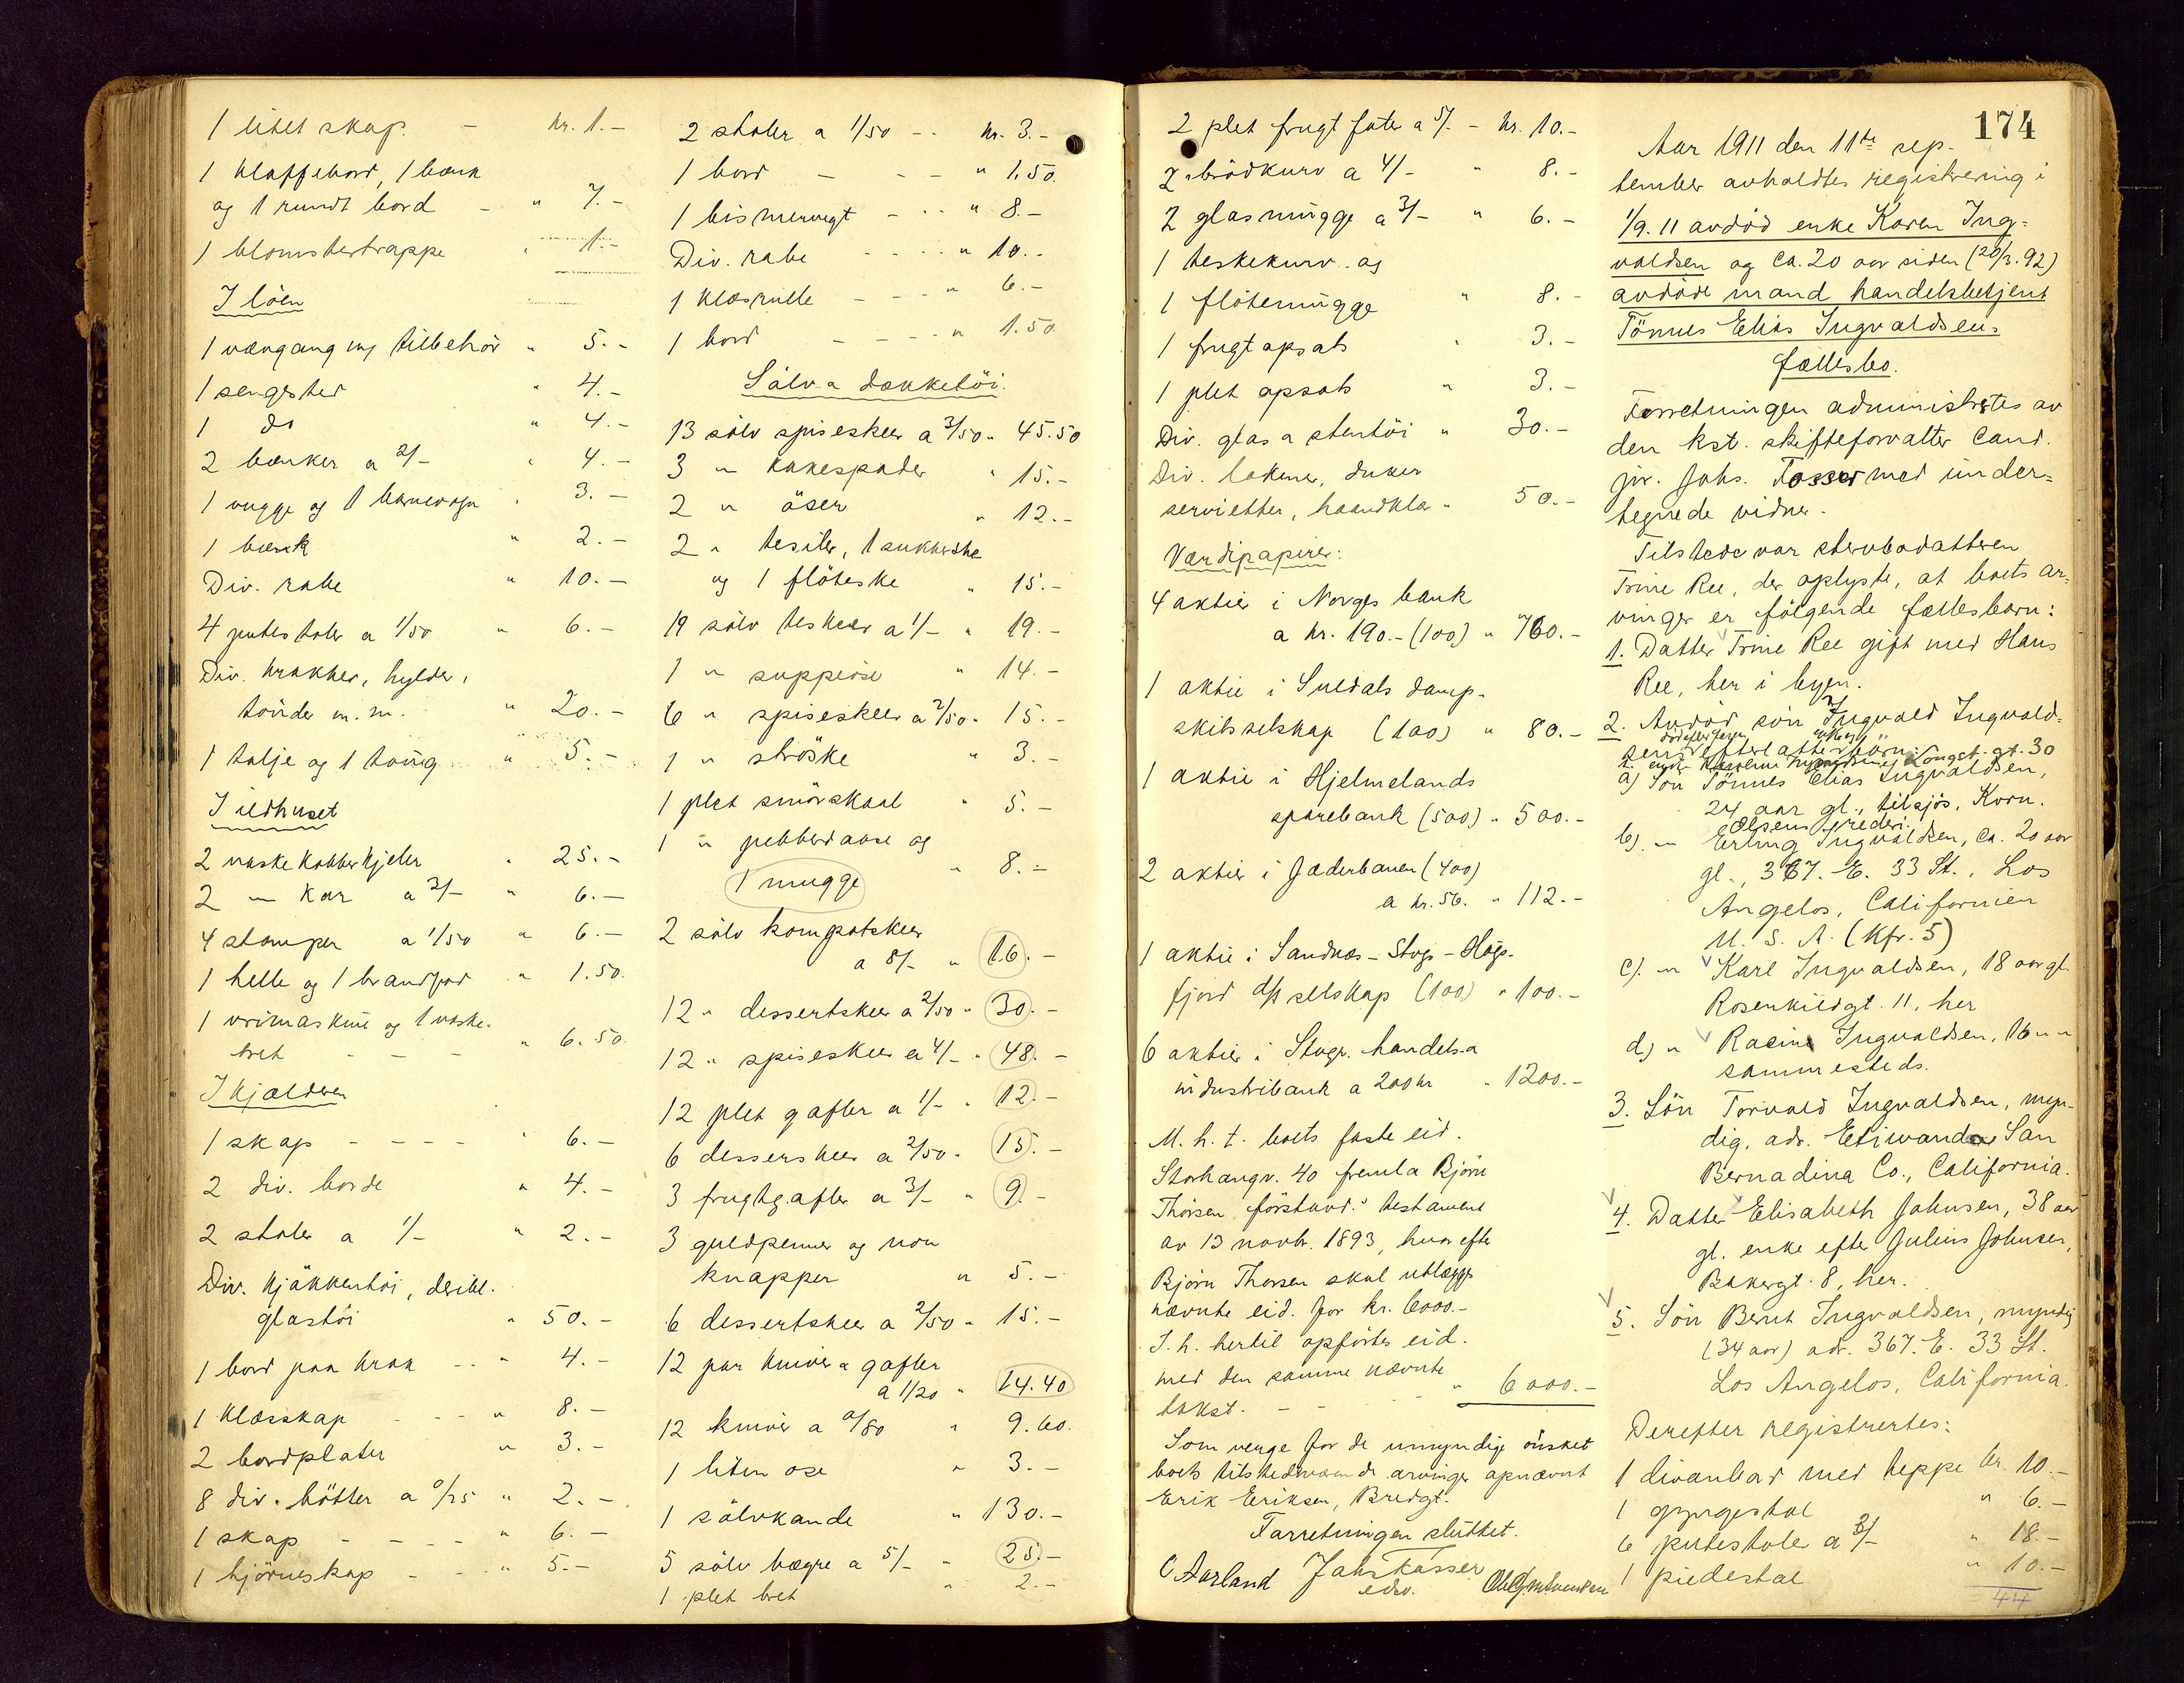 1 litet skap. - kr. 1.-
1 klaffebord, 1 bænk
og 1 rundt bord - " 7.-
1 blomstertrappe " 1.-
I löen
1 vævgang m/ tilbehör " 5.-
1 sengested " 4.-
1 do " 4.-
2 bænker a 2/- " 4.-
1 vugge og 1 barnevogn " 3.-
1 bænk " 2.-
Div. rabe " 10.-
4 putestoler a 1/50 " 6.-
Div. krakker, hylder,
tönder m.m. " 20.-
1 talje og 1 toug " 5.-
I ildhuset
2 vaskekobberkjeler " 25.-
2 " kar a 3/- " 6.-
4 stamper a 1/50 " 6.-
1 helle og 1 brandjod " 1.50.
1 vrimaskine og 1 vaske-
bret - - - " 6.50.
I kjælderen
1 skap - - - - " 6.-
2 div. borde " 4.-
2 stoler a 1/- " 2.-
Div. kjökkentöi, deribl.
glastöi " 50.-
1 bord paa krak - - " 4.-
1 klæsskap - - - " 8.-
2 bordplater " 3.-
8 div. bötter a 0/25 " 2.-
1 skap - - - - " 6.-
1 hjörneskap - - " 5.-
2 stoler a 1/50 - - kr. 3.-
1 bord - - - - " 1.50.
1 bismervegt - - - " 8.-
Div. rabe - - - - " 10.-
1 klæsrulle - - - " 6.-
1 bord - - - - " 1.50.
Sölv a dækketöi.
13 sölv spiseskeer a 3/50 " 45.50
3 " kakespader " 15.-
2 " öser " 12.-
2 " tesiler, 1 sukkerske
og 1 flöteske " 15.-
19 sölv teskeer a 1/- " 19.-
1 " suppeöse " 14.-
6 " spiseskeer a 2/50 " 15.-
1 " ströske " 3.-
1 plet smörskaal " 5.-
1 " pebberdaase og
1 mugge " 8.-
2 sölv kompotskeer
a 8/- " 16.-
12 " dessertskeer a 2/50 " 30.-
12 " spiseskeer a 4/- " 48.-
12 plet gafler a 1/- " 12.-
6 desserskeer a 2/50 " 15.-
3 frugtgafler a 3/- " 9.-
3 guldpenner og non
knapper " 5.-
6 dessertskeer a 2/50 " 15.-
12 par kniver a gafler
a 1/20 " 14.40
12 kniver a 0/80 " 9.60.
1 liten ose " 3.-
1 sölvkande " 130.-
5 sölv bægre a 5/- " 25.-
1 plet bret " 2.-
2 plet frugt fate a 5/- - kr. 10.-
2 " brödkurv a 4/- " 8.-
2 glasmugge a 3/- " 6.-
1 teskekurv og
1 flötemugge " 8.-
1 frugtopsats " 3.-
1 plet opsats " 3.-
Div. glas a stentöi " 30.-
Div. lakener, duker
servietter, haandklæ " 50.-
Værdipapirer:
4 aktier i Norges bank
a kr. 190.- (100) " 760.-
1 aktie i Suldals damp-
skibsselskap (100) " 80.-
1 aktie i Hjelmelands
sparebank (500) " 500.-
2 aktier i Jæderbanen (400)
a kr. 56. " 112.-
1 aktie i Sandnæs-Stvgs-Högs-
fjord d/s selskap (100) " 100.-
6 aktier i Stvgr. handels- a
industribank a 200 kr " 1200.-
M. h. t. boets faste eid.
Storhaugv. 40 fremla Björn
Thorsen "förstavd." testament
av 13 novbr. 1893, hvorefter
Björn Thorsen skal utlægges
nævnte eid. for kr. 6000.-
I. h. hertil opförtes eid.
med den samme nævnte
takst. - - - " 6000.-
Som verge for de umyndige önsket
boets tilstedeværende arvinger opnævnt
Erik Eriksen, Bredgt.
Forretningen sluttet.
C Aarland Johs Tosser
edv.
174
Aar 1911 den 11te sep-
tember avholdtes registrering i
1/9. 11 avdöd enke Karen Ing-
valdsen og ca. 20 aar siden (20/3. 92)
avdöde mand handelsbetjent
Tönnes Elias Ingvaldsens
fællesbo.
Forretningen administretes av
den kst. skifteforvalter cand.
jur. Johs. Tosser med under-
tegnede vidner.
Tilstede var stervbodatteren
Trine Ree, der oplyste, at boets ar-
vinger er fölgende fællesbarn:
1. Datter Trine Ree gift med Hans
Ree, her i byen.
2. Avdöd sön Ingvald Ingvald-
sen, efterlatter börn: Longst. gt. 30
a) Sön Tönnes Elias Ingvaldsen,
24 aar gl., tilsjös, Korn.
Olsens rederi.
b). " Erling Ingvaldsen, ca. 20 aar
gl., 367. E. 33 St., Los
Angelos, Californien
U. S. A. (kfr. 5)
c). " Karl Ingvaldsen, 18 aar gl.
Rosenkildgt. 11, her
d) " Racine Ingvaldsen, 16 " "
sammesteds.
3. Sön Torvald Ingvaldsen, myn-
dig, adr. Etiwanda San
Bernadina Co., California.
4. Datter Elisabeth Johnsen, 38 aar
gl. enke efter Julius Johnsen,
Bakergt. 8, her.
5. Sön Bernt Ingvaldsen, myndig
(34 aar) adr. 367. E. 33 St.
Los Angelos, California.
Derefter registrertes:
1 divanbord med teppe kr. 10.-
1 gyngestol " 6.-
6 putestoler a 3/- " 18.-
1 piedestal " 10.-
44